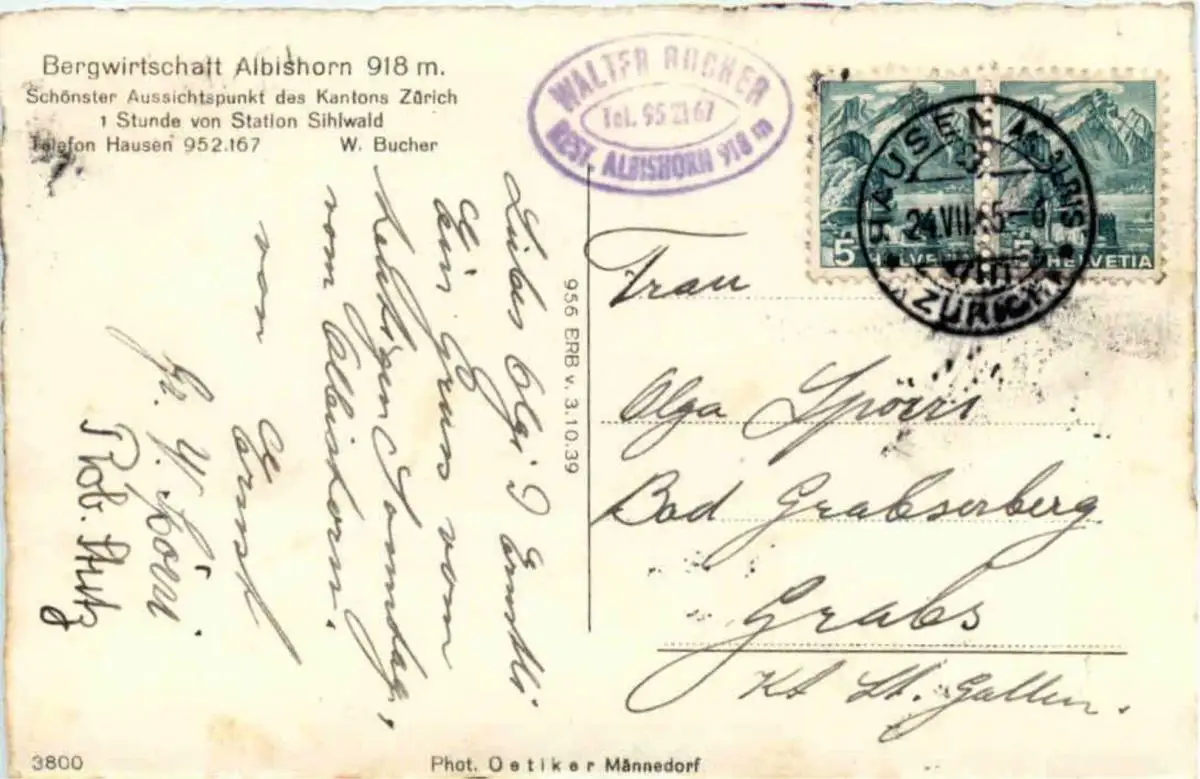 Bergwirtschaft Albishorn 918 m.
Schönster Aussichtspunkt des Kantons Zürich
1 Stunde von Station Sihlwald
Telefon Hausen 952.167 W. Bucher
WALTER BUCHER
Tel. 95 21 67
REST. ALBISHORN 918 m
HAUSEN A. ALBIS
24.VII.45-6
(ZÜRICH)
5 HELVETIA
5 HELVETIA
Liebes Olgi & Ernstli.
Ein Gruss vom
heutigen Sonntag,
vom Albishorn.
von Ernst
Gr. Y. Spörri.
Rob. Stutz
956 ERB v. 3.10.39
Frau
Olga Spörri
Bad Grabserberg
Grabs
Kt St. Gallen.
3800
Phot. Oetiker Männedorf